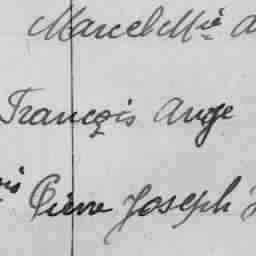 Marcel Mie
François Ange
Pierre Joseph